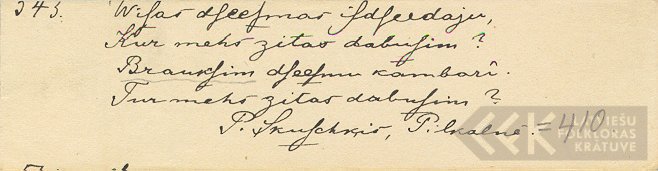 343. Wiſas dſeeſmas iſdſeedaju,
Kur mehs zitas dabuſim?
Braukſim dſeeſmu kambarî.
Tur mehs zitas dabuſim?
P. Skuſchkis, Pilkalnê = 410
LATVIEŠU
FOLKLORAS
KRĀTUVE